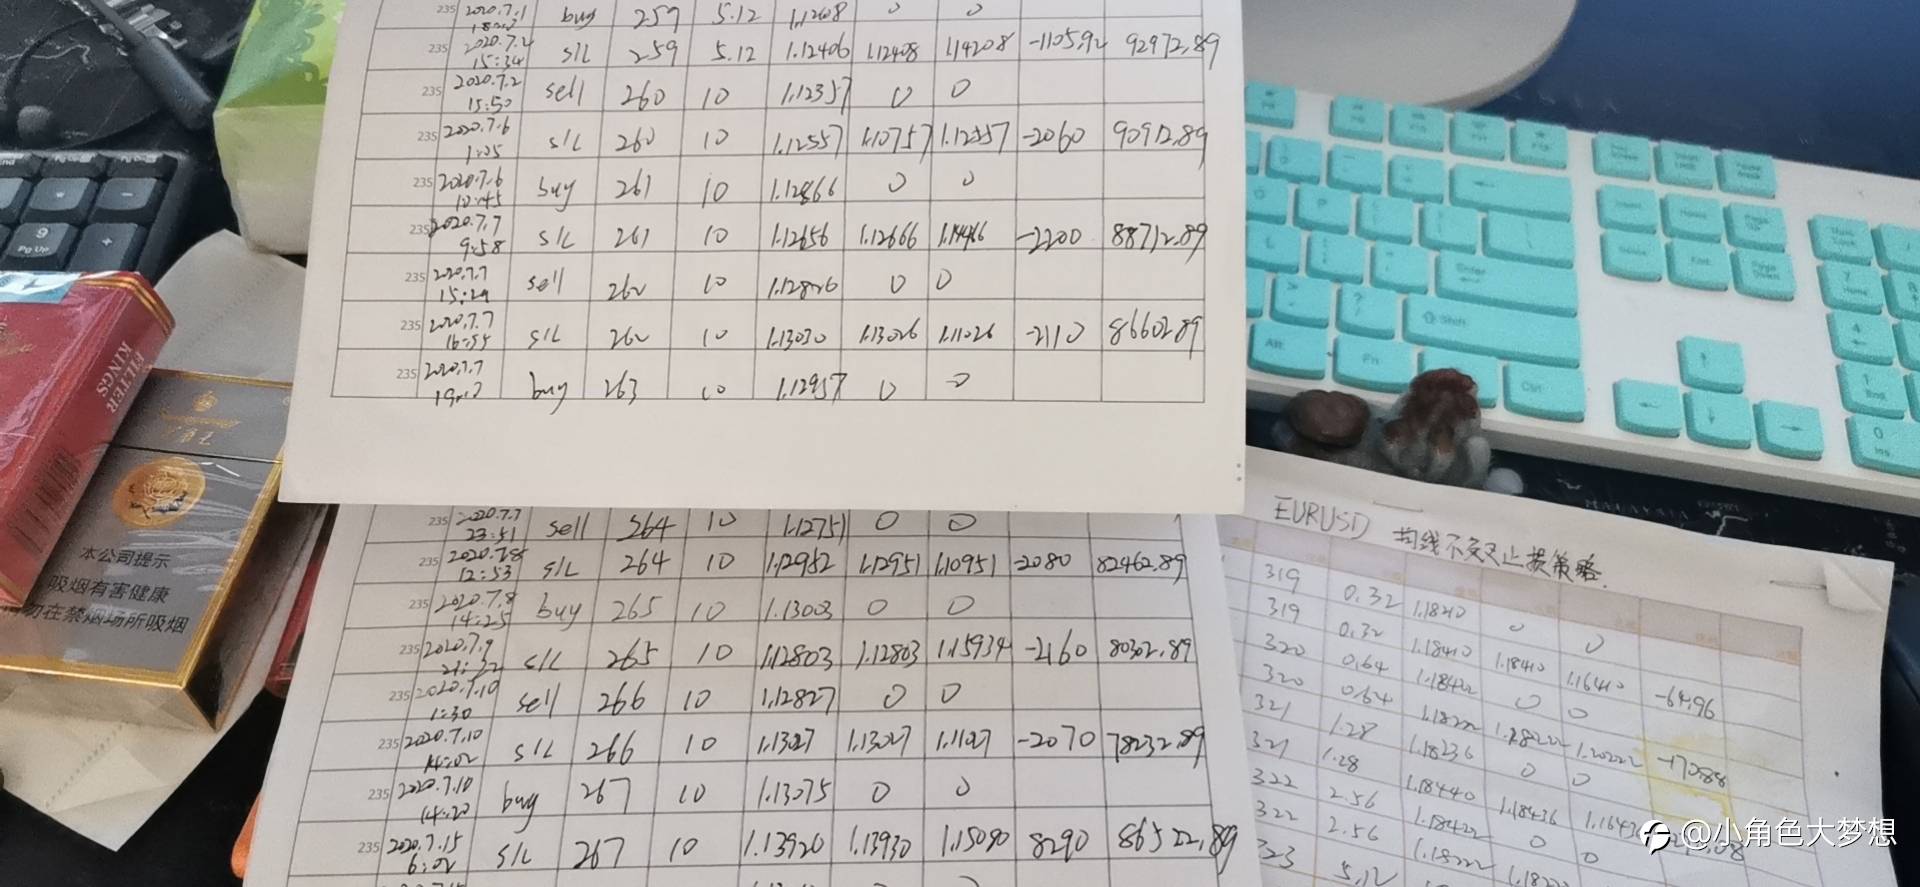 235 2020.7.1 buy 259 5.12 1.12608 0 0
235 2020.7.2 15:34 s/L 259 5.12 1.12406 1.12408 1.14208 -1105.92 92972.89
235 2020.7.2 15:50 sell 260 10 1.12357 0 0
235 2020.7.6 1:05 s/L 260 10 1.12557 1.10757 1.12557 -2060 90912.89
235 2020.7.6 10:45 buy 261 10 1.12866 0 0
235 2020.7.7 9:58 s/L 261 10 1.12656 1.12666 1.14466 -2200 88712.89
235 2020.7.7 15:29 sell 262 10 1.12826 0 0
235 2020.7.7 16:55 s/L 262 10 1.13030 1.13026 1.11026 -2110 86602.89
235 2020.7.7 buy 263 10 1.12957 0 0
235 2020.7.7 23:51 sell 264 10 1.12751 0 0
235 2020.7.8 12:53 s/L 264 10 1.12952 1.12951 1.10951 -2080 82462.89
235 2020.7.8 14:25 buy 265 10 1.13003 0 0
235 2020.7.9 21:32 s/L 265 10 1.12803 1.12803 1.15934 -2160 80302.89
235 2020.7.10 1:30 sell 266 10 1.12827 0 0
235 2020.7.10 14:02 s/L 266 10 1.13027 1.13027 1.11027 -2070 78232.89
235 2020.7.10 14:20 buy 267 10 1.13075 0 0
235 2020.7.15 6:02 s/L 267 10 1.13920 1.13930 1.15080 8290 86522.89
EURUSD 均线不变止损策略
319 0.32 1.18210 0 0
319 0.32 1.18410 1.18410 1.16410 -64.96
320 0.64 1.18422 0 0
320 0.64 1.18222 1.18222 1.20222 -170.88
321 1.28 1.18236 0 0
321 1.28 1.18440 1.18436 1.1643
322 2.56 1.18422 0 0
322 2.56 1.18222
323 5.12
FILTER KINGS
本公司提示
吸烟有害健康
请勿在禁烟场所吸烟
@小角色大梦想
9
Pg Up
Enter
Shift
Alt
Fn
Ctrl